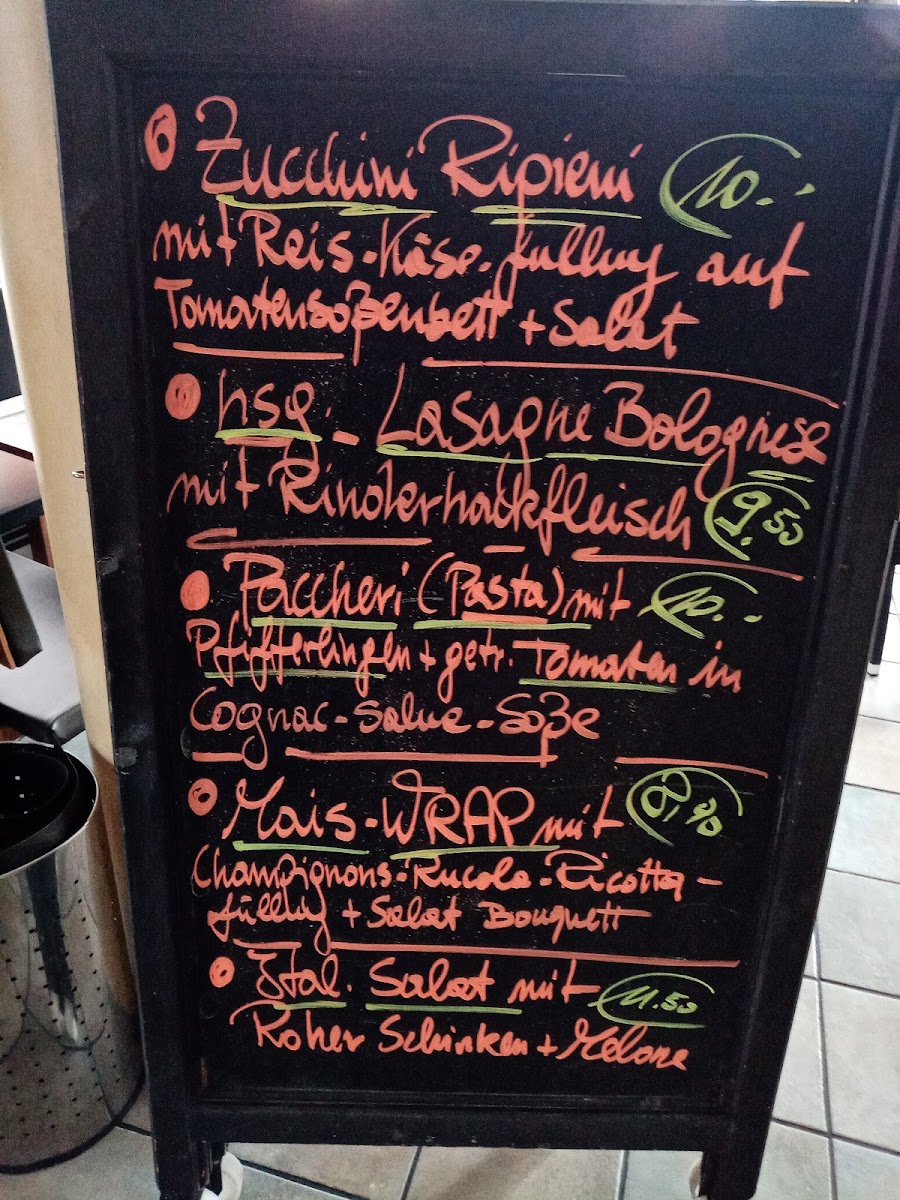 Zucchini Ripieni 10.-
mit Reis-Käse-füllung auf
Tomatensoßenbett + Salat
hsg.- Lasagne Bolognese
mit Rinderhackfleisch 9.50
Paccheri (Pasta) mit 10.-
Pfifferlingen + getr. Tomaten in
Cognac-Sahne-Soße
Mais-WRAP mit 8,90
Champignons-Rucola-Ricotta-
füllung + Salat Bouquett
Ital. Salat mit 11.50
Roher Schinken + Melone